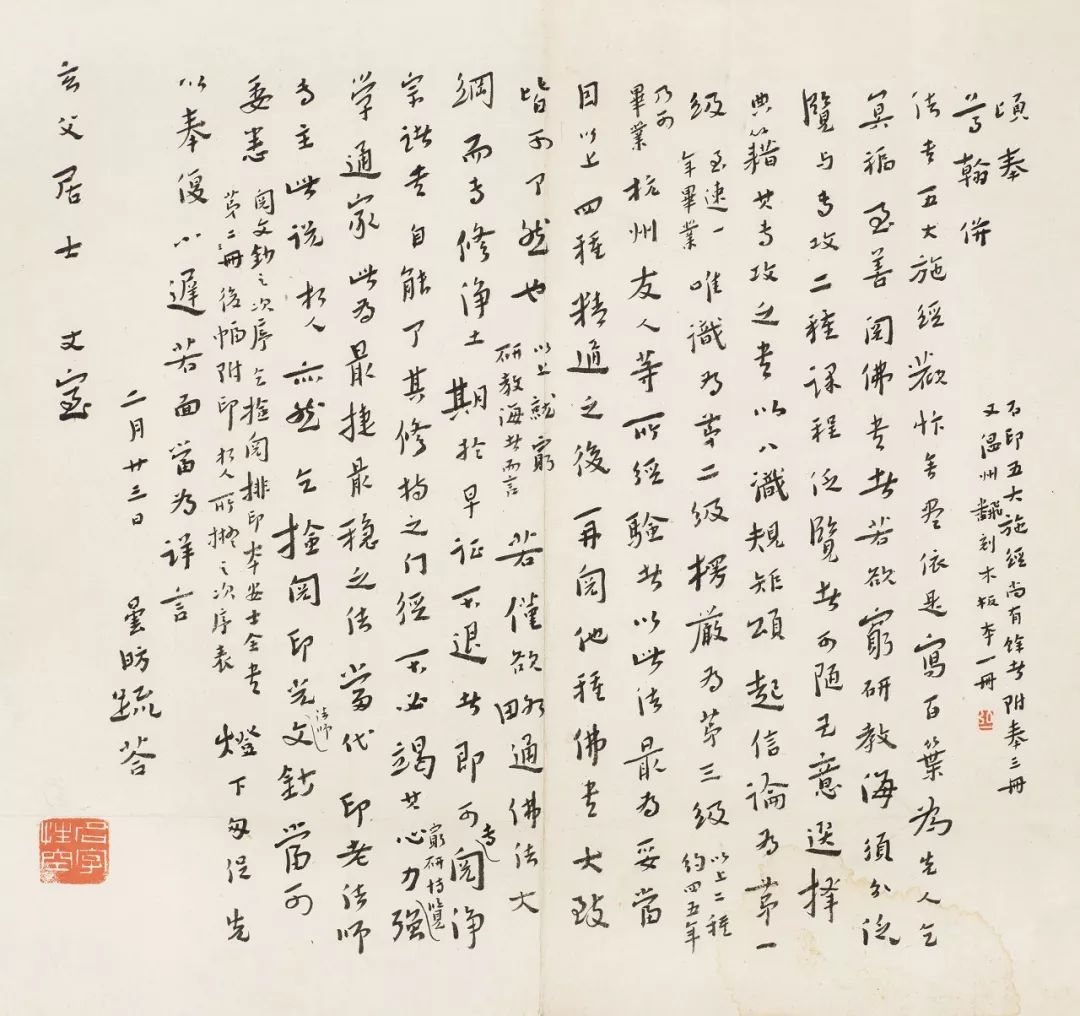 頃奉
尊翰併
法書五大施經歡忭無盡依是寫百葉為先人乞
冥福至善閱佛書者若欲窮研教海須分泛
覽與專攻二種課程泛覽者可隨己意選擇
典籍其專攻之書以八識規矩頌起信論為第一
級至速一年畢業唯識為第二級楞嚴為第三級以上二種約四五年
乃可畢業杭州友人等所經驗者以此法最為妥當
因以上四種精通之後再閱他種佛書大致
皆可了然也以上就窮研教海者而言若僅欲略通佛法大
綱而專修淨土期於早証不退者即可專閱淨
宗諸書自能了其修持之門徑不必竭其心力窮研博覽強
学通家此為最捷最穩之法當代印老法師
專主此説朽人亦然乞撿閱印光法師文鈔當可
委悉閱文鈔之次序乞撿閱排印本安士全書
第二冊後幅附印朽人所擬之次序表燈下匆促先
以奉復小遲若面當為詳言
二月廿三日 曇昉疏答
玄父居士 丈室
石印五大施經尚有餘者附奉三冊
又温州翻刻木板本一冊
名字性空